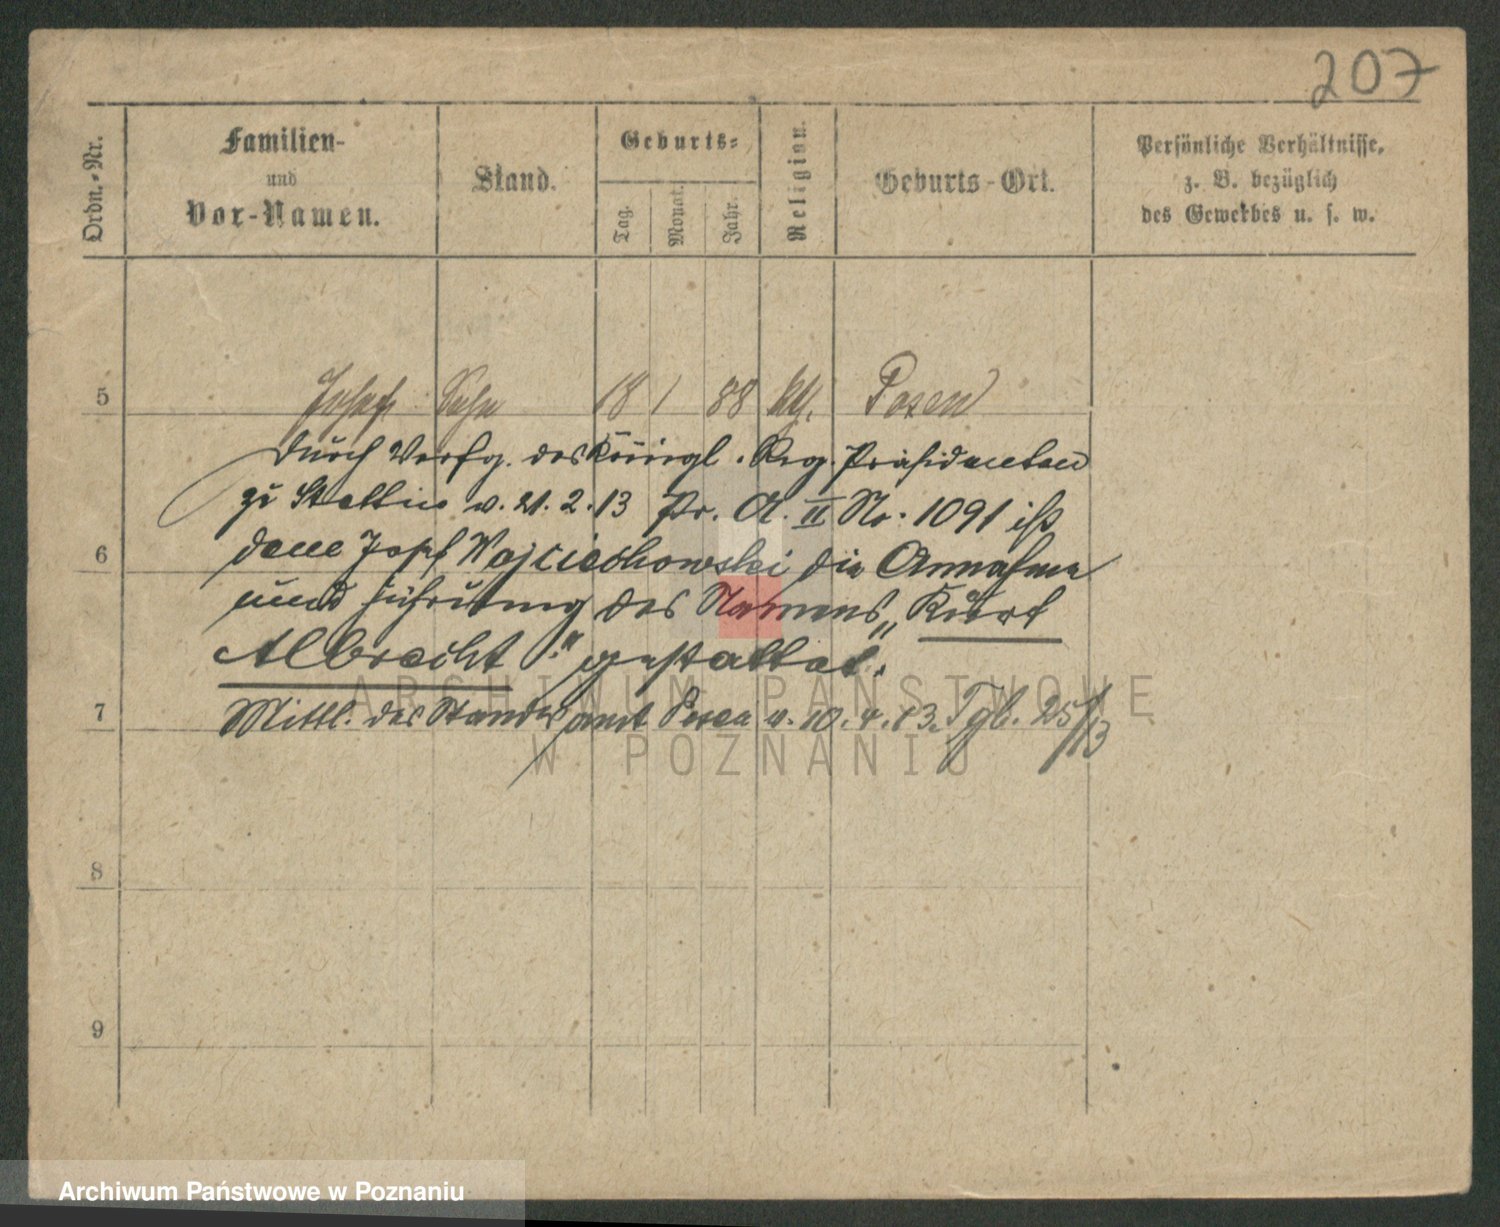 207
Ordn.-Nr.
Familien-
und
Vor-Namen.
Stand.
Geburts-
Tag.
Monat.
Jahr.
Religion.
Geburts-Ort.
Persönliche Verhältnisse,
z. B. bezüglich
des Gewerbes u. s. w.
5 Josef Sohn 18 1 88 kth. Posen
Durch Verfg. des Königl. Reg. Präsidenten
zu Stettin v. 21. 2. 13 Pr. A. II No. 1091 ist
dem Josef Wojciechowski die Annahme
6
und Führung des Namens „Kurt
Albrecht" gestattet.
7 Mittl. des Standesamt Posen v. 10. 4. 13. Tgb. 25/13
8
9
ARCHIWUM PAŃSTWOWE
W POZNANIU
Archiwum Państwowe w Poznaniu